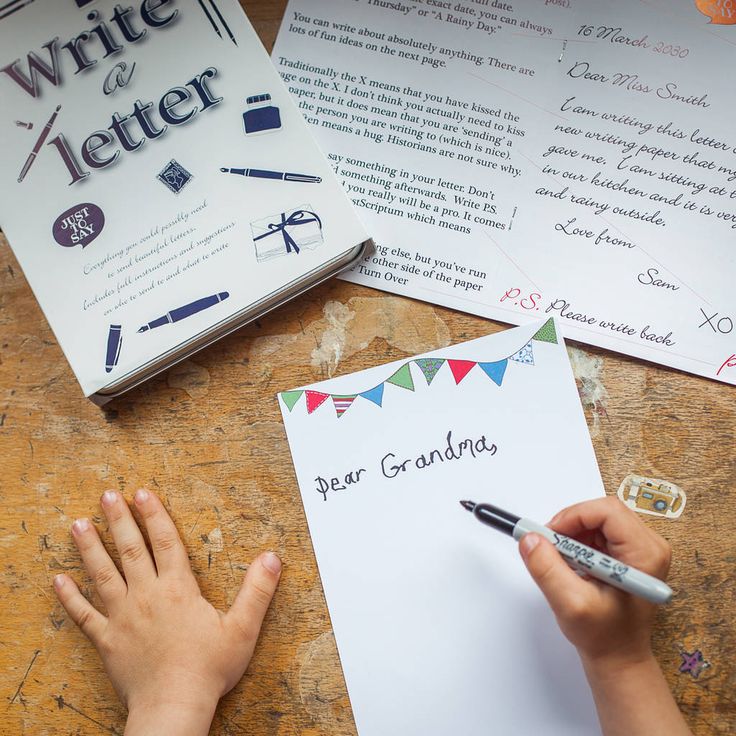 Write
a
letter
JUST
TO
SAY
Everything you could possibly need
to send beautiful letters.
Includes full instructions and suggestions
on who to send to and what to write
full date.
exact date, you can always
Thursday" or "A Rainy Day."
You can write about absolutely anything. There are
lots of fun ideas on the next page.
Traditionally the X means that you have kissed the
page on the X. I don't think you actually need to kiss
paper, but it does mean that you are 'sending' a
the person you are writing to (which is nice).
means a hug. Historians are not sure why.
say something in your letter. Don't
d something afterwards. Write P.S.
d you really will be a pro. It comes
ostScriptum which means
ing else, but you've run
e other side of the paper
Turn Over
post).
TO SAY
16 March 2030
Dear Miss Smith
I am writing this letter
new writing paper that my
gave me. I am sitting at t
in our kitchen and it is ver
and rainy outside.
Love from
Sam
P.S. Please write back
XO
Dear Grandma,
Sharpie